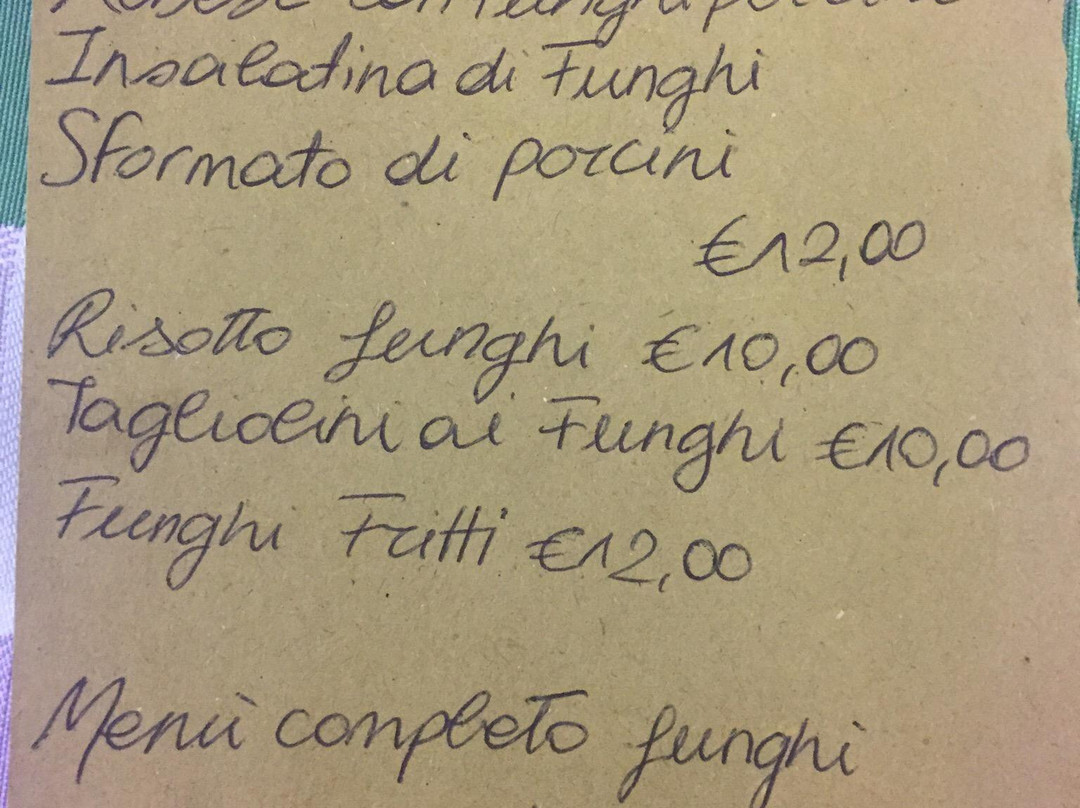 con funghi porcini
Insalatina di Funghi
Sformato di porcini
€12,00
Risotto funghi €10,00
Tagliolini ai Funghi €10,00
Funghi Fritti €12,00
Menù completo funghi